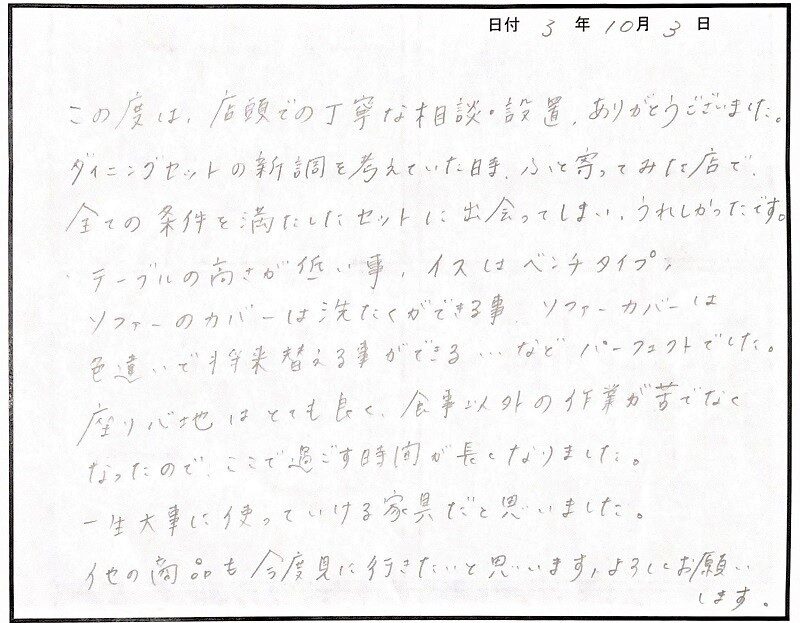 日付 3 年 10月 3 日
この度は、店頭での丁寧な相談・設置、ありがとうございました。
ダイニングセットの新調を考えていた時、ふと寄ってみた店で、
全ての条件を満たしたセットに出会ってしまい、うれしかったです。
テーブルの高さが低い事、イスはベンチタイプ、
ソファーのカバーは洗たくができる事、ソファーカバーは
色違いで将来替える事ができる…などパーフェクトでした。
座り心地はとても良く、食事以外の作業が苦でなく
なったので、ここで過ごす時間が長くなりました。
一生大事に使っていける家具だと思いました。
他の商品も今度見に行きたいと思います、よろしくお願い
します。